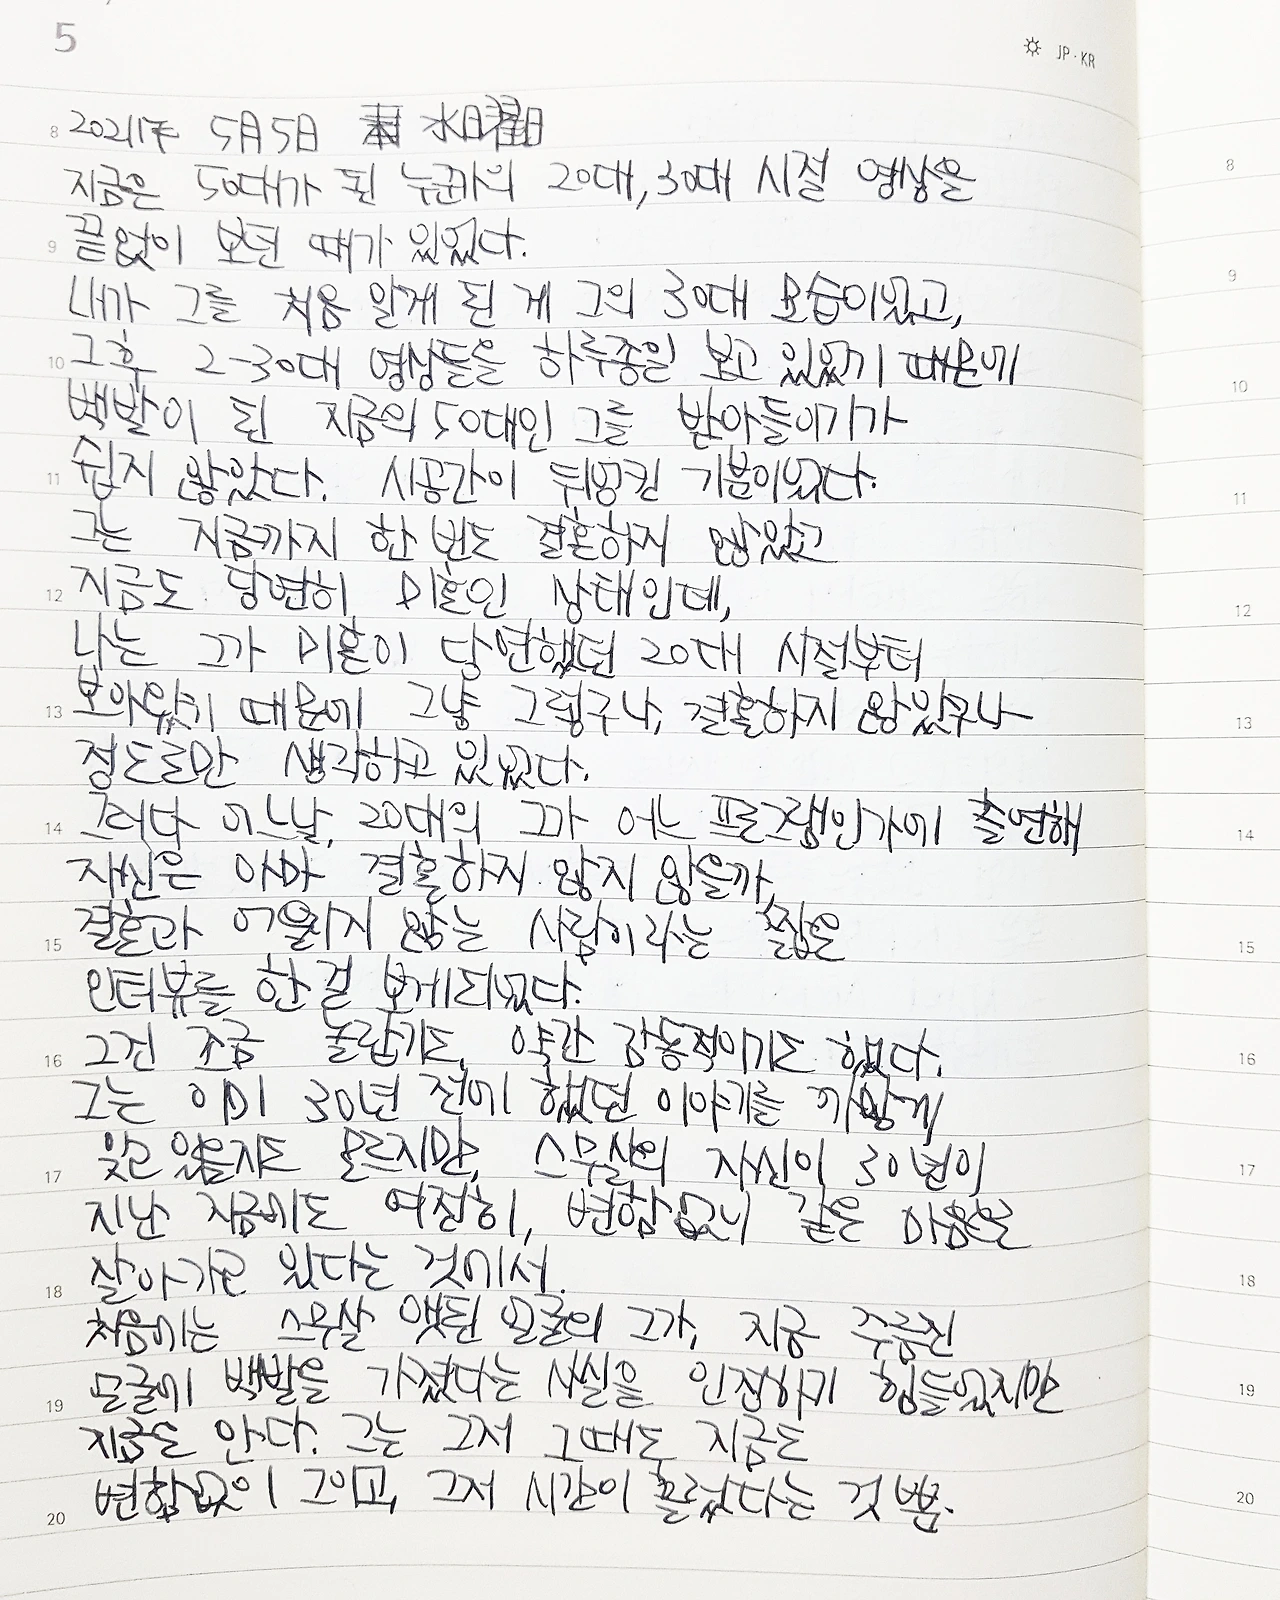 5
JP·KR
2021年 5月5日 水曜日
지금은 50대가 된 누군가의 20대, 30대 시절 영상을
끝없이 보던 때가 있었다.
내가 그를 처음 알게 된 게 그의 30대 모습이었고,
그후 2-30대 영상들을 하루종일 보고 있었기 때문에
백발이 된 지금의 50대인 그를 받아들이기가
쉽지 않았다. 시공간이 뒤엉킨 기분이었다.
그는 지금까지 한 번도 결혼하지 않았고
지금도 당연히 미혼인 상태인데,
나는 그가 미혼이 당연했던 20대 시절부터
보아왔기 때문에 그냥 그렇구나, 결혼하지 않았구나
정도로만 생각하고 있었다.
그러다 어느날, 20대의 그가 어느 프로그램인가에 출연해
자신은 아마 결혼하지 않지 않을까,
결혼과 어울리지 않는 사람이라는 짧은
인터뷰를 한 걸 보게되었다.
그건 조금 놀랍기도, 약간 감동적이기도 했다.
그는 이미 30년 전에 했던 이야기를 까맣게
잊고 있을지도 모르지만, 스무살의 자신이 30년이
지난 지금에도 여전히, 변함없이 같은 마음을
살아가고 있다는 것에서.
처음에는 스무살 앳된 얼굴의 그가, 지금 주름진
얼굴에 백발을 가졌다는 사실을 인정하기 힘들었지만
지금은 안다. 그는 그저 그때도 지금도
변함없이 그이고, 그저 시간이 흘렀다는 것 뿐.
8
9
10
11
12
13
14
15
16
17
18
19
20
8
9
10
11
12
13
14
15
16
17
18
19
20